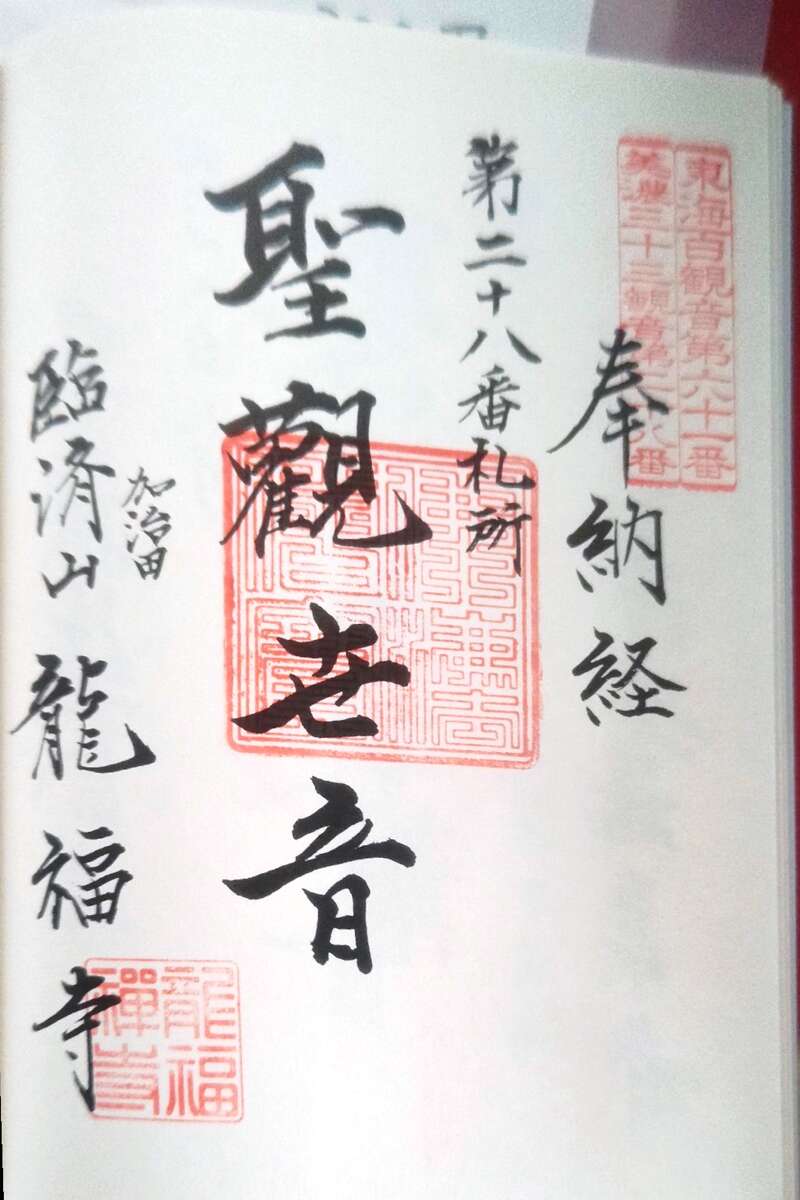 東海百観音第六十一番
美濃三十三観音第二十八番
奉納経
第二十八番札所
聖觀世音
加治田
臨済山龍福寺
龍福
禅寺